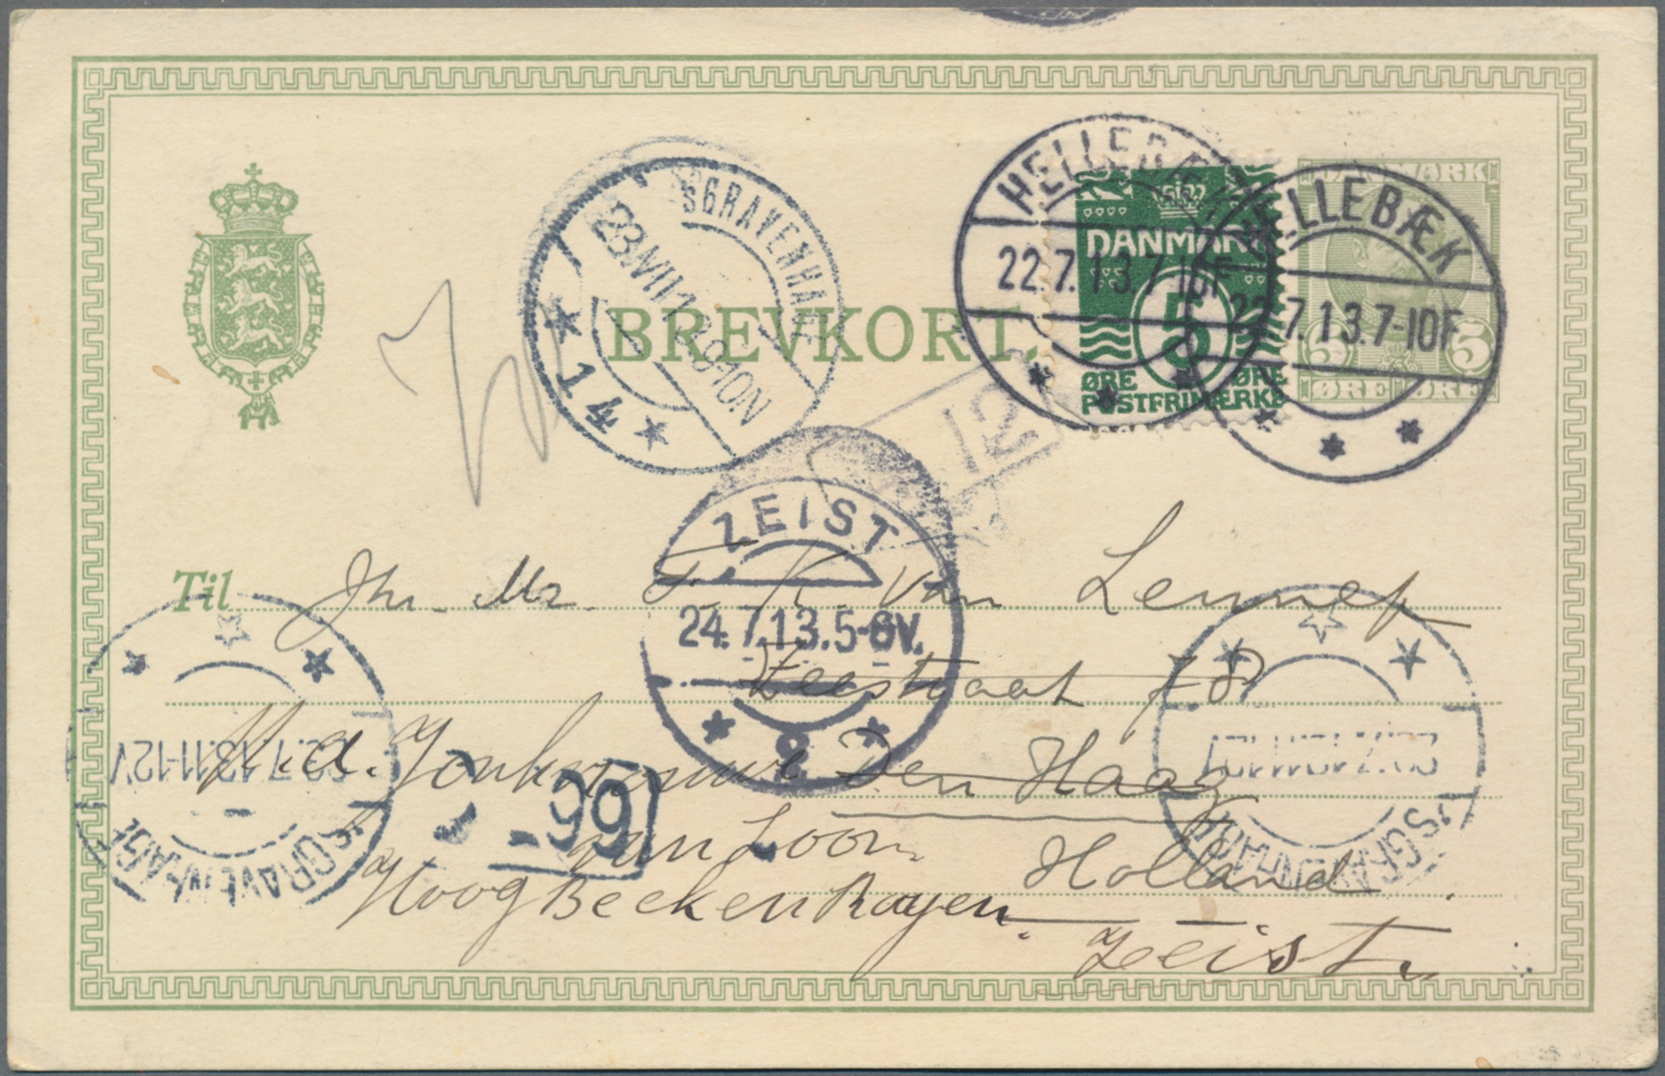 BREVKORT.
HELLEBÆK
22.7.13.7-10F
HELLEBÆK
22.7.13.7-10F
DANMARK
5
ØRE ØRE
POSTFRIMÆRKE
DANMARK
5 5
ØRE ØRE
SGRAVENHAGE
23.VII.13.9-10N
14
12
ZEIST
24.7.13.5-6V.
2
Til Jhr. Mr. F. K. van Lennep
Zeestraat 78
Den Haag
Holland
M. d. Jonkvrouwe
van Loon
Hoog Beek en Royen.
Zeist.
'SGRAVENHAGE
7.13.11-12V
66
'SGRAVENHAGE